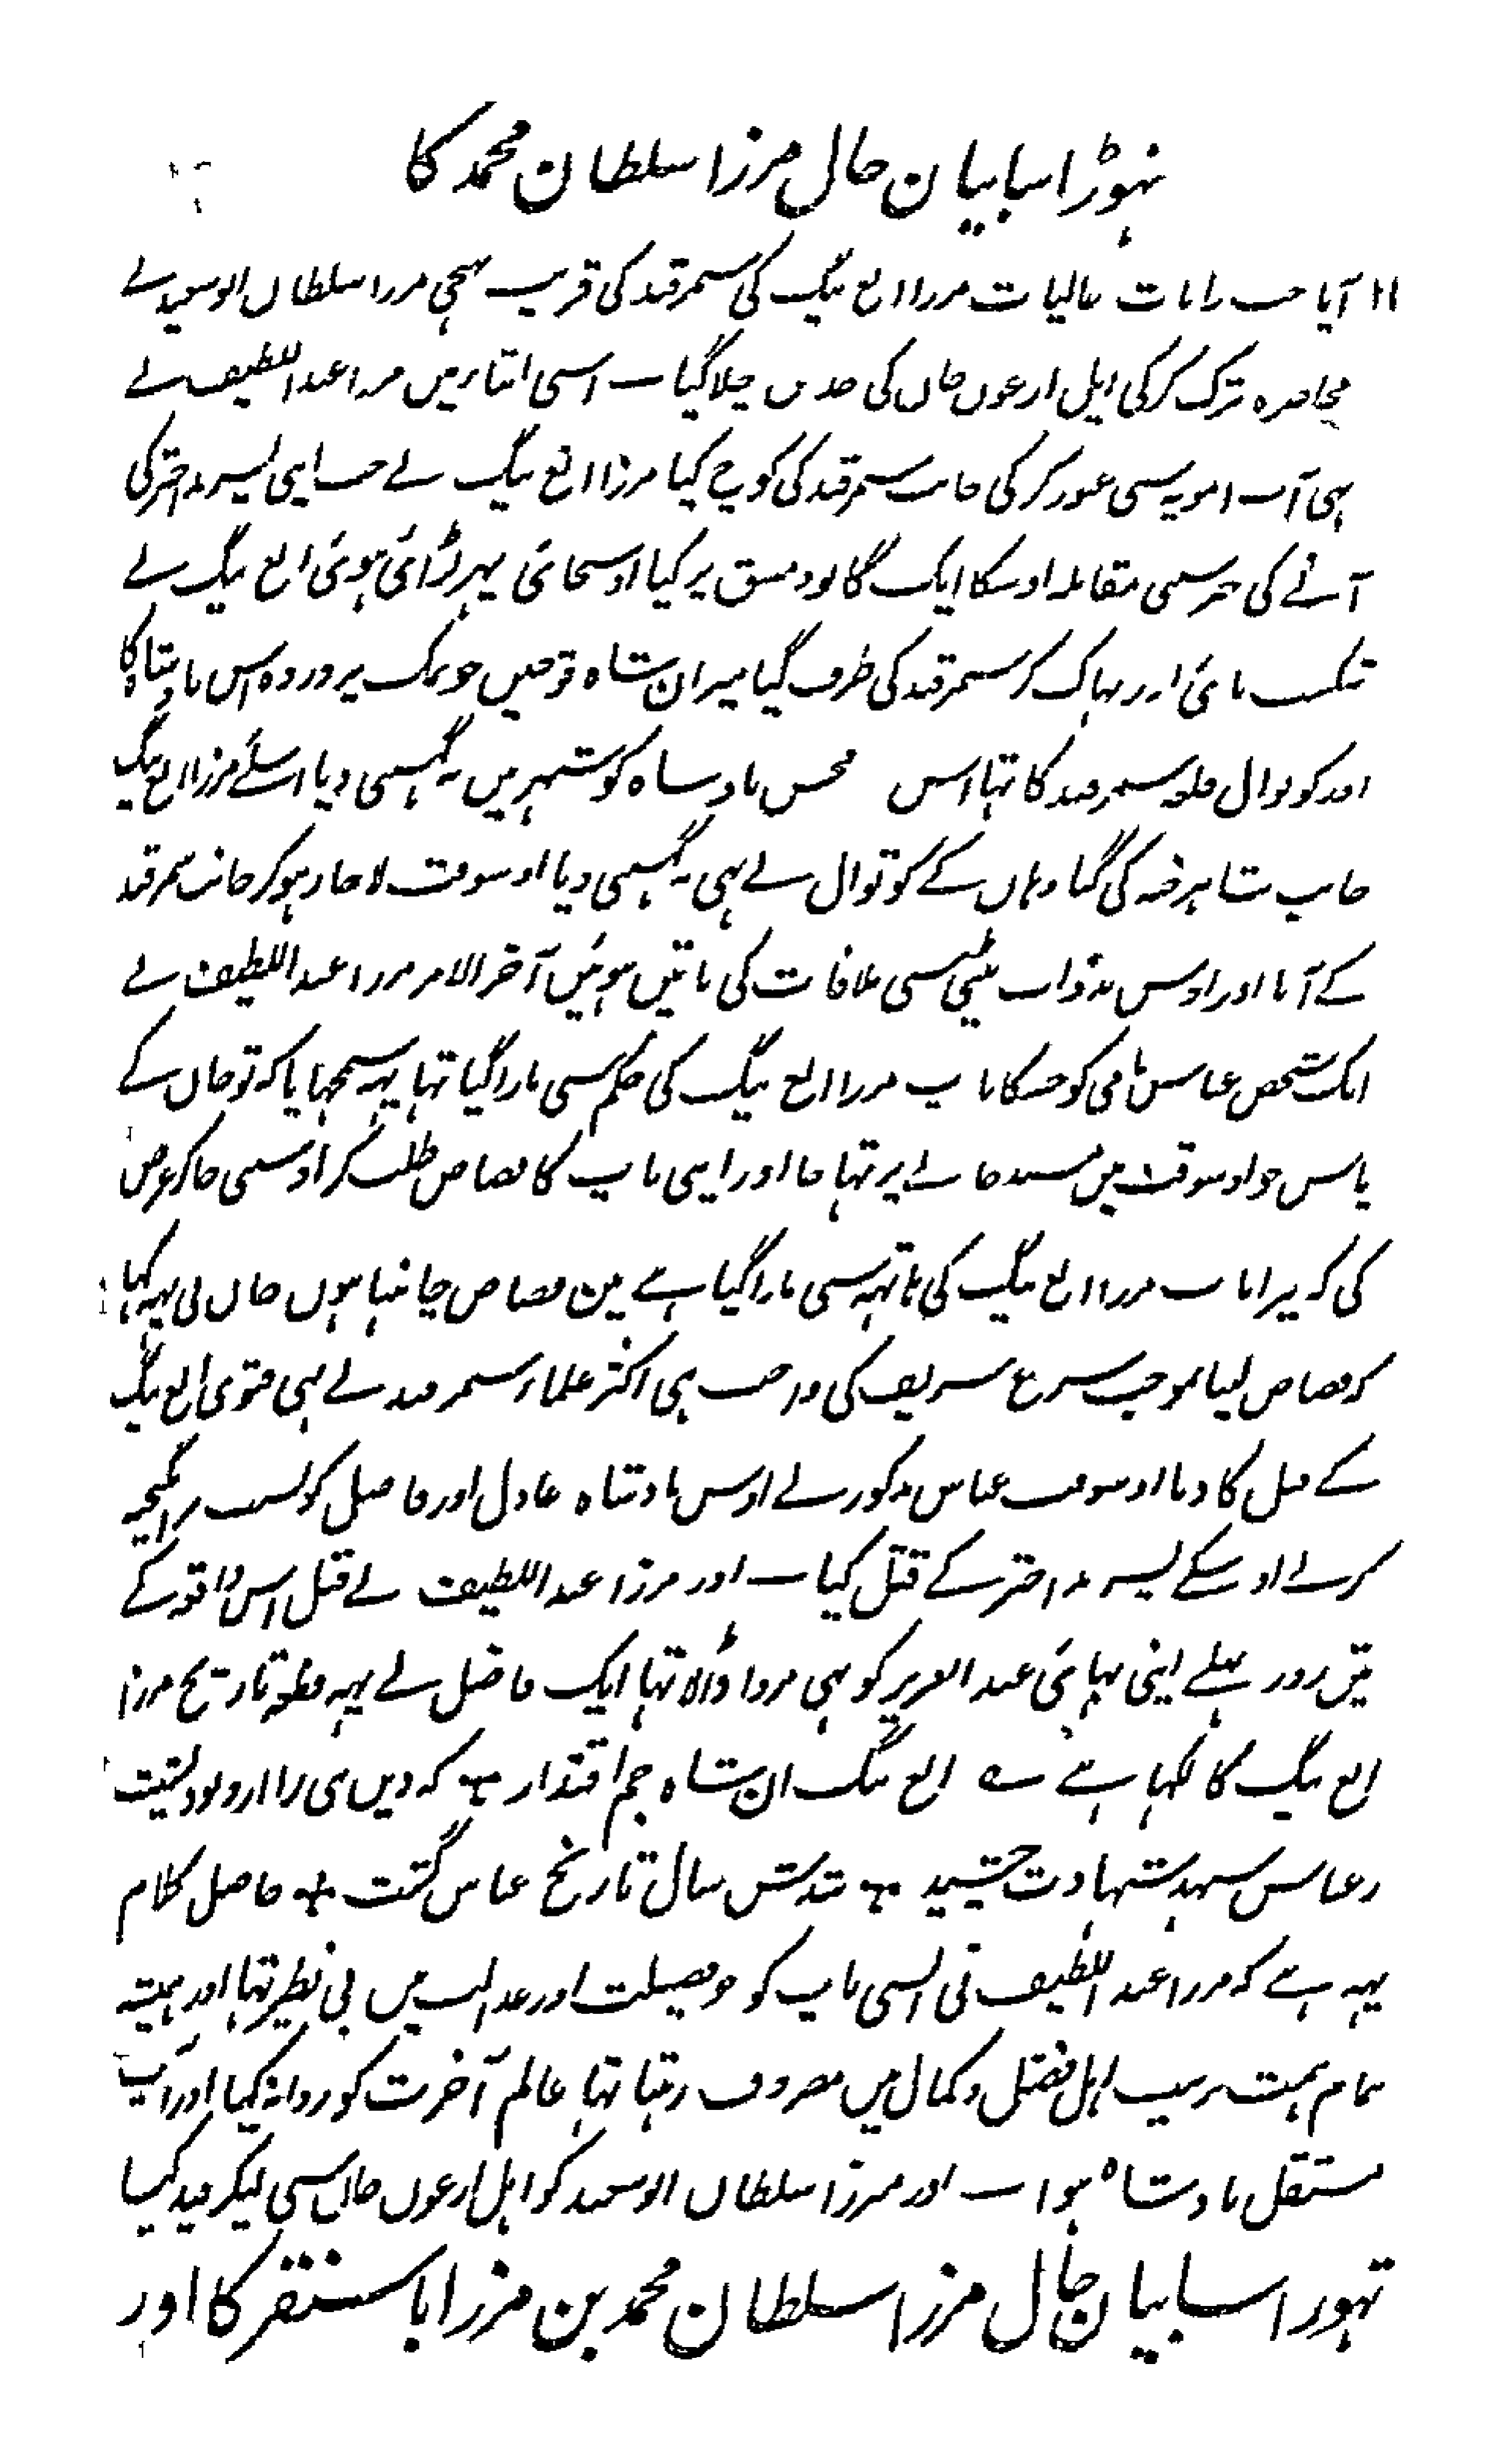 تہوڑا سا بیان حال مرزا سلطان محمد کا
۱۱ آیا جب رایات عالیات مرزا الغ بیگ کی سمرقند کی قریب پہنچی مرزا سلطان ابوسعید نے
محاصرہ ترک کر کی ایل ارغون خان کی حد میں چلا گیا ۔ اسی اثناء میں مرزا عبد اللطیف نے
بہی آب امویہ سی عبور کر کی جانب سمرقند کی کوچ کیا مرزا الغ بیگ نے جب اپنی پسر بد اختر کی
آنے کی خبر سنی مقابلہ اوسکا ایک گانو دمشق پر کیا اوسجائی پہر لڑائی ہوئی الغ بیگ نے
شکست پائی اور بہاگ کر سمرقند کی طرف گیا میران شاہ قوچین جو نمک پروردہ اس بادشاہ کا
اور کوتوال قلعہ سمرقند کا تہا اس محسن بادشاہ کو شہر میں نہ گہسنی دیا اسلئے مرزا الغ بیگ
جانب شاہرخیہ کی گیا وہاں کے کوتوال نے بہی نہ گہسنی دیا اوسوقت لاچار ہو کر جانب سمرقند
کے آیا اور اوس بدذات بیٹی سی ملاقات کی باتیں ہوئیں آخر الامر مرزا عبد اللطیف نے
ایک شخص عباس نامی کو جسکا باپ مرزا الغ بیگ کی حکم سی مارا گیا تہا یہہ سمجہایا کہ تو خان کے
پاس جو اوسوقت میں مسند خانے پر تہا جا اور اپنی باپ کا قصاص طلب کر اوسنی جا کر عرض
کی کہ میرا باپ مرزا الغ بیگ کی ہاتہہ سی مارا گیا ہے مین قصاص چاہتا ہوں خان نی یہہ کہا
کہ قصاص لینا بموجب شرع شریف کی واجب ہی اکثر علماء سمرقند نے بہی فتوی الغ بیگ
کے قتل کا دیا اوسوقت عباس مذکور نے اوس بادشاہ عادل اور فاضل کو بسبب برانگیختہ
کرنے اوسکے پسر بد اختر کے قتل کیا ۔ اور مرزا عبد اللطیف نے قبل اس واقعہ کے
تین روز پہلے اپنی بہائی عبد العزیز کو بہی مروا ڈالا تہا ایک فاضل نے یہہ قطعہ تاریخ مرزا
الغ بیگ کا لکہا ہے ؎ الغ بیگ ان شاہ جم اقتدار ٭ کہ دین نبی را ازو بود پشت
زعباس شہد شہادت چشید ٭ شدش سال تاریخ عباس کشت ٭ حاصل کلام
یہہ ہے کہ مرزا عبد اللطیف نی ایسی باپ کو جو فضیلت اور عدالت میں بی نظیر تہا اور ہمیشہ
تمام ہمت تربیت اہل فضل و کمال میں مصروف رہتا تہا عالم آخرت کو روانہ کیا اور آپ
مستقل بادشاہ ہوا ۔ اور مرزا سلطان ابوسعید کو ایل ارغون خان سی لیکر قید کیا
تہوڑا سا بیان حال مرزا سلطان محمد بن مرزا بایسنقر کا اور